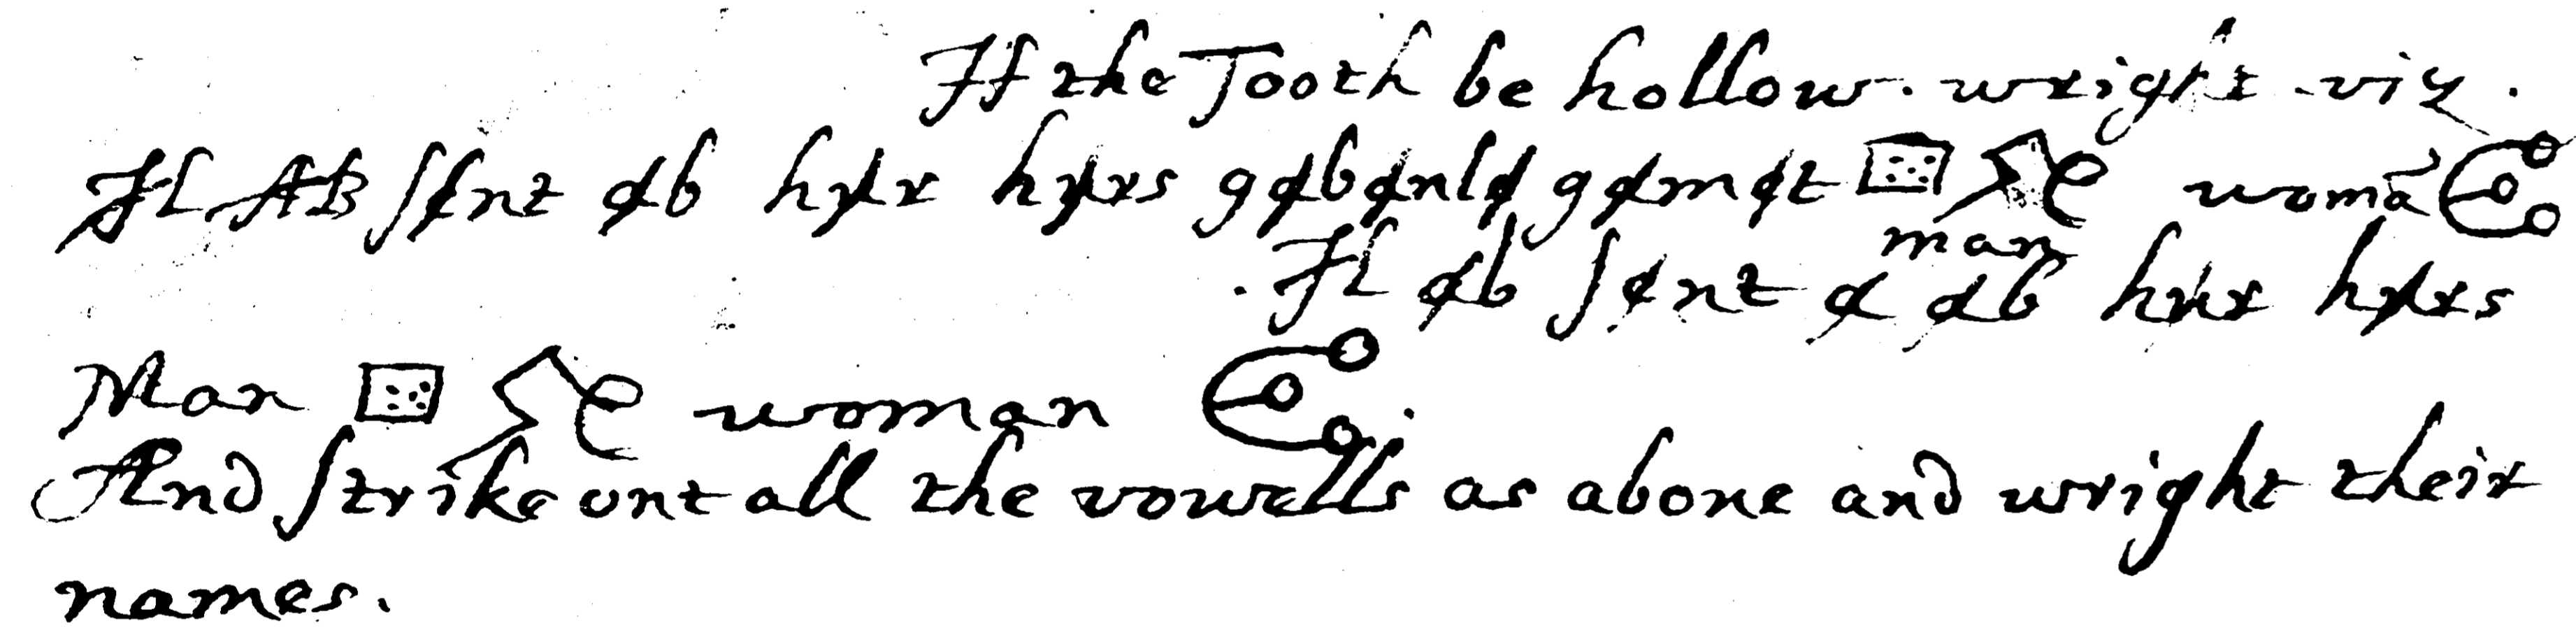 If the Tooth be hollow. wright viz.
Il AB sent ab hur hurs gabanla gamat womā
man
Il ab sent a ab hur hurs
Man woman
And strike out all the vowells as aboue and wright their
names.